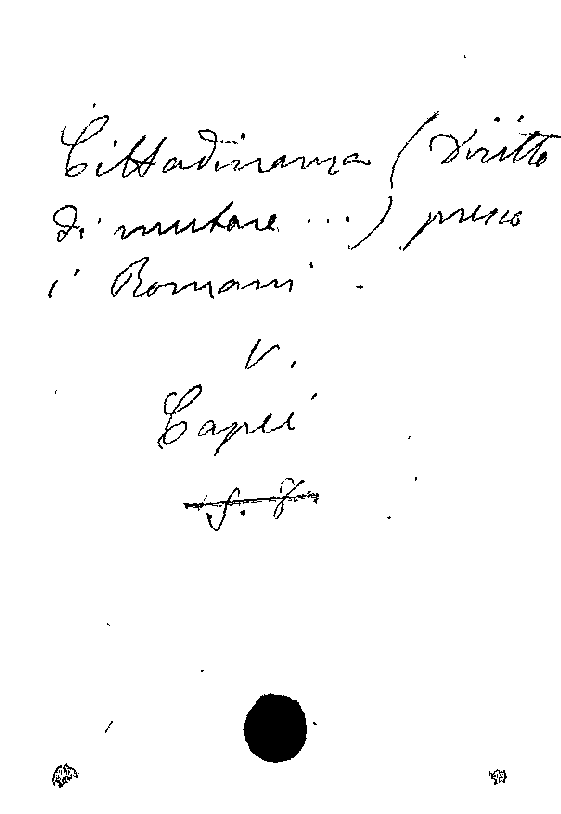 Cittadinanza (Diritto
di mutare ...) presso
i Romani.
V.
Capei